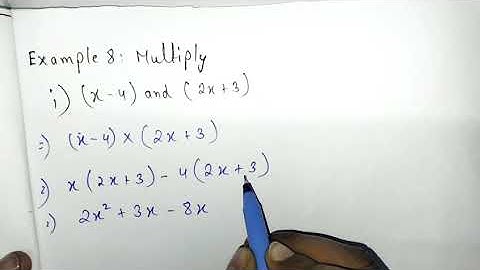 Example 8: Multiply
i) (x-4) and (2x+3)
=) (x-4) × (2x+3)
=) x(2x+3) - 4(2x+3)
=) 2x² + 3x - 8x